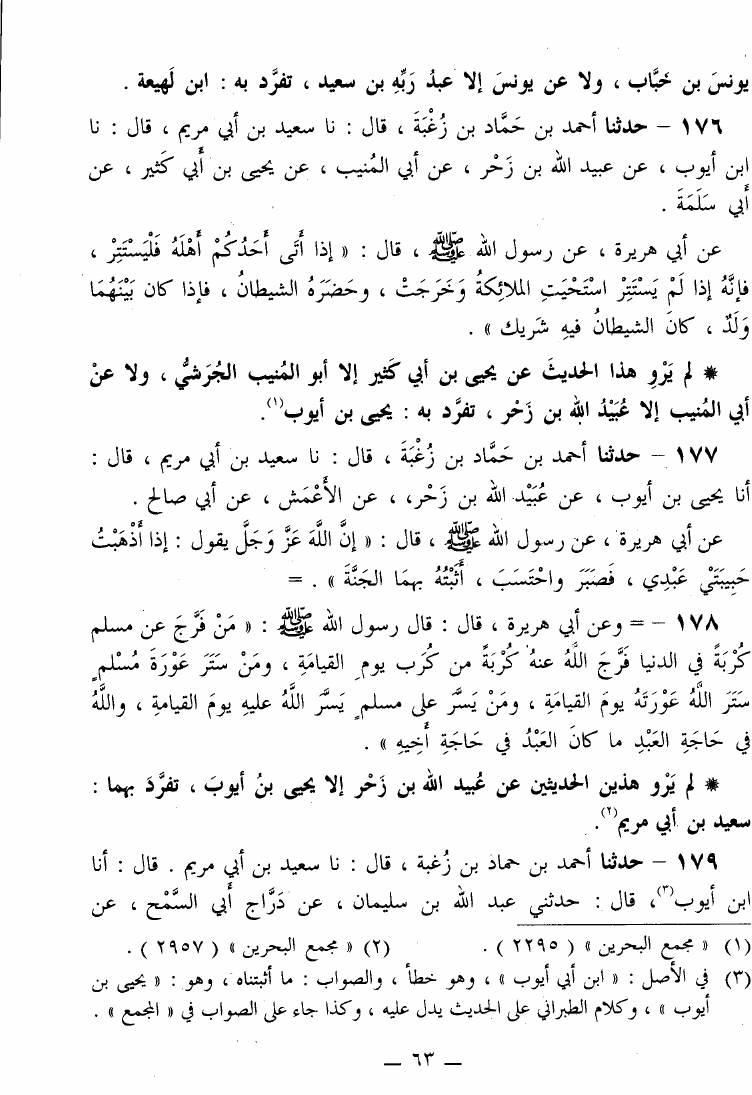 يونسَ بن خَبَّاب ، ولا عن يونسَ إلا عبدُ رَبِّهِ بن سعيد ، تفرَّد به : ابن لَهيعة .
١٧٦ – حدثنا أحمد بن حَمَّاد بن زُغْبَةَ ، قال : نا سعيد بن أبي مريم ، قال : نا
ابن أيوب ، عن عبيد الله بن زَحْر ، عن أبي المُنيب ، عن يحيى بن أَبي كَثير ، عن
أبي سَلَمَةَ .
عن أبي هريرة ، عن رسول الله ﷺ ، قال : « إذا أَتَى أَحَدُكُمْ أَهْلَهُ فَلْيَسْتَتِرْ ،
فإنَّهُ إذا لَمْ يَسْتَتِرْ اسْتَحْيَتِ الملائِكةُ وَخَرَجَتْ ، وحَضَرَهُ الشيطانُ ، فإذا كان بَيْنَهُمَا
وَلَدٌ ، كانَ الشيطانُ فيهِ شَريك » .
* لم يَرْوِ هذا الحديثَ عن يحيى بن أبي كَثير إلا أبو المُنيب الجُرَشيُّ ، ولا عنْ
أبي المُنيب إلا عُبَيْدُ اللهِ بن زَحْر ، تفرَّد به : يحيى بن أيوب(١).
١٧٧ – حدثنا أحمد بن حَمَّاد بن زُغْبَةَ ، قال : نا سعيد بن أبي مريم ، قال :
أنا يحيى بن أيوب ، عن عُبَيْد الله بن زَحْر، ، عن الأَعْمَش ، عن أبي صالح .
عن أبي هريرة ، عن رسول الله ﷺ ، قال : « إنَّ اللَّهَ عَزَّ وَجَلَّ يقول : إذا أَذْهَبْتُ
حَبِيبَتَيْ عَبْدِي ، فَصَبَرَ واحْتَسَبَ ، أَثَبْتُهُ بهِمَا الجَنَّةَ » . =
١٧٨ – = وعن أبي هريرة ، قال : قال رسول الله ﷺ : « مَنْ فَرَّجَ عن مسلم
كُرْبَةً في الدنيا فَرَّجَ اللَّهُ عنهُ كُرْبَةً من كُرَب يومِ القيامَةِ ، ومَنْ سَتَرَ عَوْرَةَ مُسْلمٍ
سَتَرَ اللَّهُ عَوْرَتَهُ يومَ القيامَةِ ، ومَنْ يَسَّرَ على مسلمٍ يَسَّرَ اللَّهُ عليهِ يومَ القيامَةِ ، واللَّهُ
في حَاجَةِ العَبْدِ ما كانَ العَبْدُ في حَاجَةِ أَخِيهِ » .
* لم يَرْو هذين الحديثين عن عُبيد الله بن زَحْر إلا يحيى بنُ أيوبَ ، تفرَّدَ بهما :
سعيد بن أبي مريم(٢).
١٧٩ – حدثنا أحمد بن حماد بن زُغبة ، قال : نا سعيد بن أبي مريم . قال : أنا
ابن أيوب(٣)، قال : حدثني عبد الله بن سليمان ، عن دَرَّاج أبي السَّمْح ، عن
(١) « مجمع البحرين » ( ٢٢٩٥ ) . (٢) « مجمع البحرين » ( ٢٩٥٧ ) .
(٣) في الأصل : « ابن أبي أيوب » ، وهو خطأ ، والصواب : ما أثبتناه ، وهو : « يحيى بن
أيوب » ، وكلام الطبراني على الحديث يدل عليه ، وكذا جاء على الصواب في « المجمع » .
– ٦٣ –